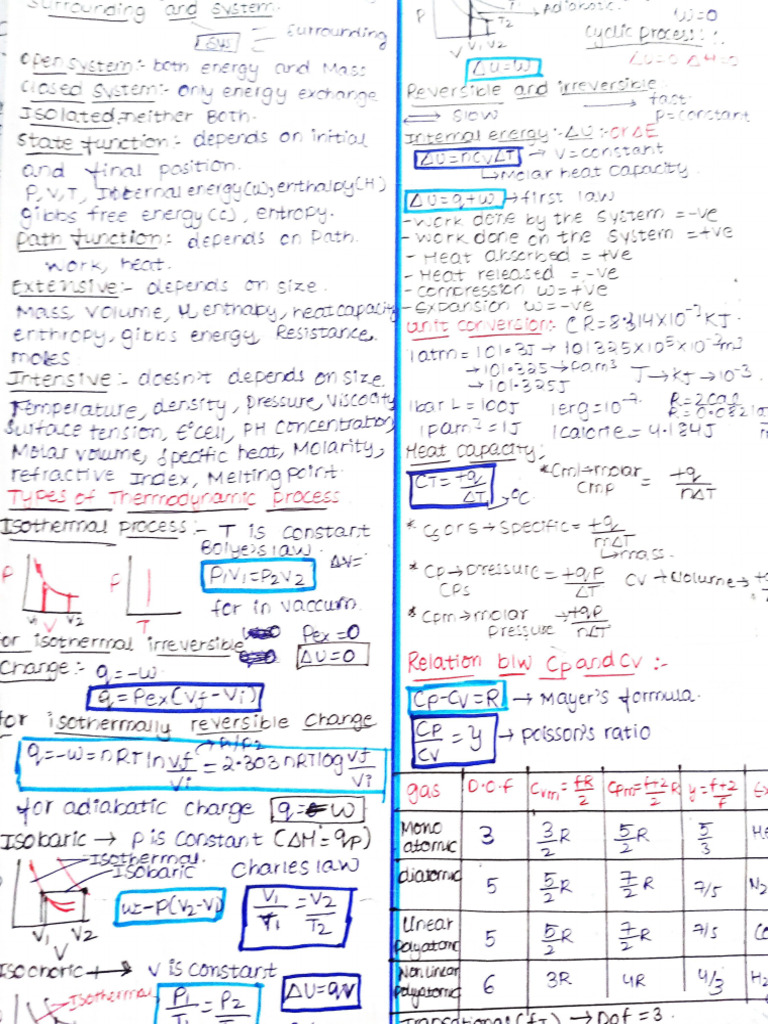 Surrounding and system.
Sys
Surrounding
Open system:- both energy and Mass
Closed system:- only energy exchange
Isolated:-neither Both.
State function:- depends on initial
and final position.
P, V, T, Internal energy(u), enthalpy(H)
gibbs free energy(G), entropy.
Path function:- depends on Path.
work, heat.
Extensive:- depends on size.
Mass, volume, U, enthalpy, heat capacity
enthropy, gibbs energy, Resistance,
moles
Intensive:- doesn't depends on size.
Temperature, density, pressure, viscocity
Surface tension, E°cell, PH concentration
Molar volume, specific heat, Molarity,
refractive Index, Melting point.
Types of Thermodynamic process
Isothermal process:- T is constant
Bolye's law
ΔV=
P₁V₁=P₂V₂
P P
V₁ V₂
V T
for in vaccum.
for isothermal irreversible Pex=0
ΔU=0
Change:- q=-w
q=Pex(Vf-Vi)
for isothermally reversible change
P₁/P₂
q=-w=nRTln Vf/Vi = 2.303nRTlog Vf/Vi
for adiabatic change q=w
Isobaric → P is constant (ΔH=qp)
Isothermal.
Isobaric Charles law
w=-P(V₂-V₁)
V₁/T₁=V₂/T₂
V₁ V₂
V
Isochoric → V is constant
Isothermal
P₁/T₁=P₂/T₂
ΔU=qv
P T₂ Adiabatic
V V₁ V₂
w=0
Cyclic process:-
ΔU=0 ΔH=0
ΔU=w
Reversible and irreversible:
slow fast
P=constant
Internal energy:-ΔU:-or ΔE
ΔU=nCvΔT → V=constant
Molar heat capacity
ΔU=q+w → first law
-work done by the system =-ve
-work done on the system =+ve
-Heat absorbed = +ve
-Heat released = -ve
-compression w=+ve
-Expansion w=-ve
Unit conversion:- CR=8.314x10⁻³KJ
1atm=101.3J → 101325x10⁵x10⁻³m³
→101.325→Pam³ J→KJ→10⁻³
→101.325J
1bar L=100J 1erg=10⁻⁷ R=2cal
1Pam³=1J 1calorie=4.184J R=0.0821
Heat capacity:-
CT=+q/ΔT →°C
*Cm→molar Cmp = +q/nΔT
* Cs or s→Specific=+q/mΔT
mass.
* Cp→Pressure=+qp/ΔT Cv→volume→
Cps
* Cpm→molar pressure →+qp/nΔT
Relation b/w Cp and Cv:-
Cp-Cv=R → Mayer's formula.
Cp/Cv=y → poisson's ratio
gas D.O.f Cvm=fR/2 Cpm=f+2/2 R y=f+2/f Ex
Mono atomic 3 3/2 R 5/2 R 5/3 He
diatomic 5 5/2 R 7/2 R 7/5 N₂
Linear polyatomic 5 5/2 R 7/2 R 7/5 CO
Non linear polyatomic 6 3R 4R 4/3 H₂
Transational(fT) → Dof = 3.